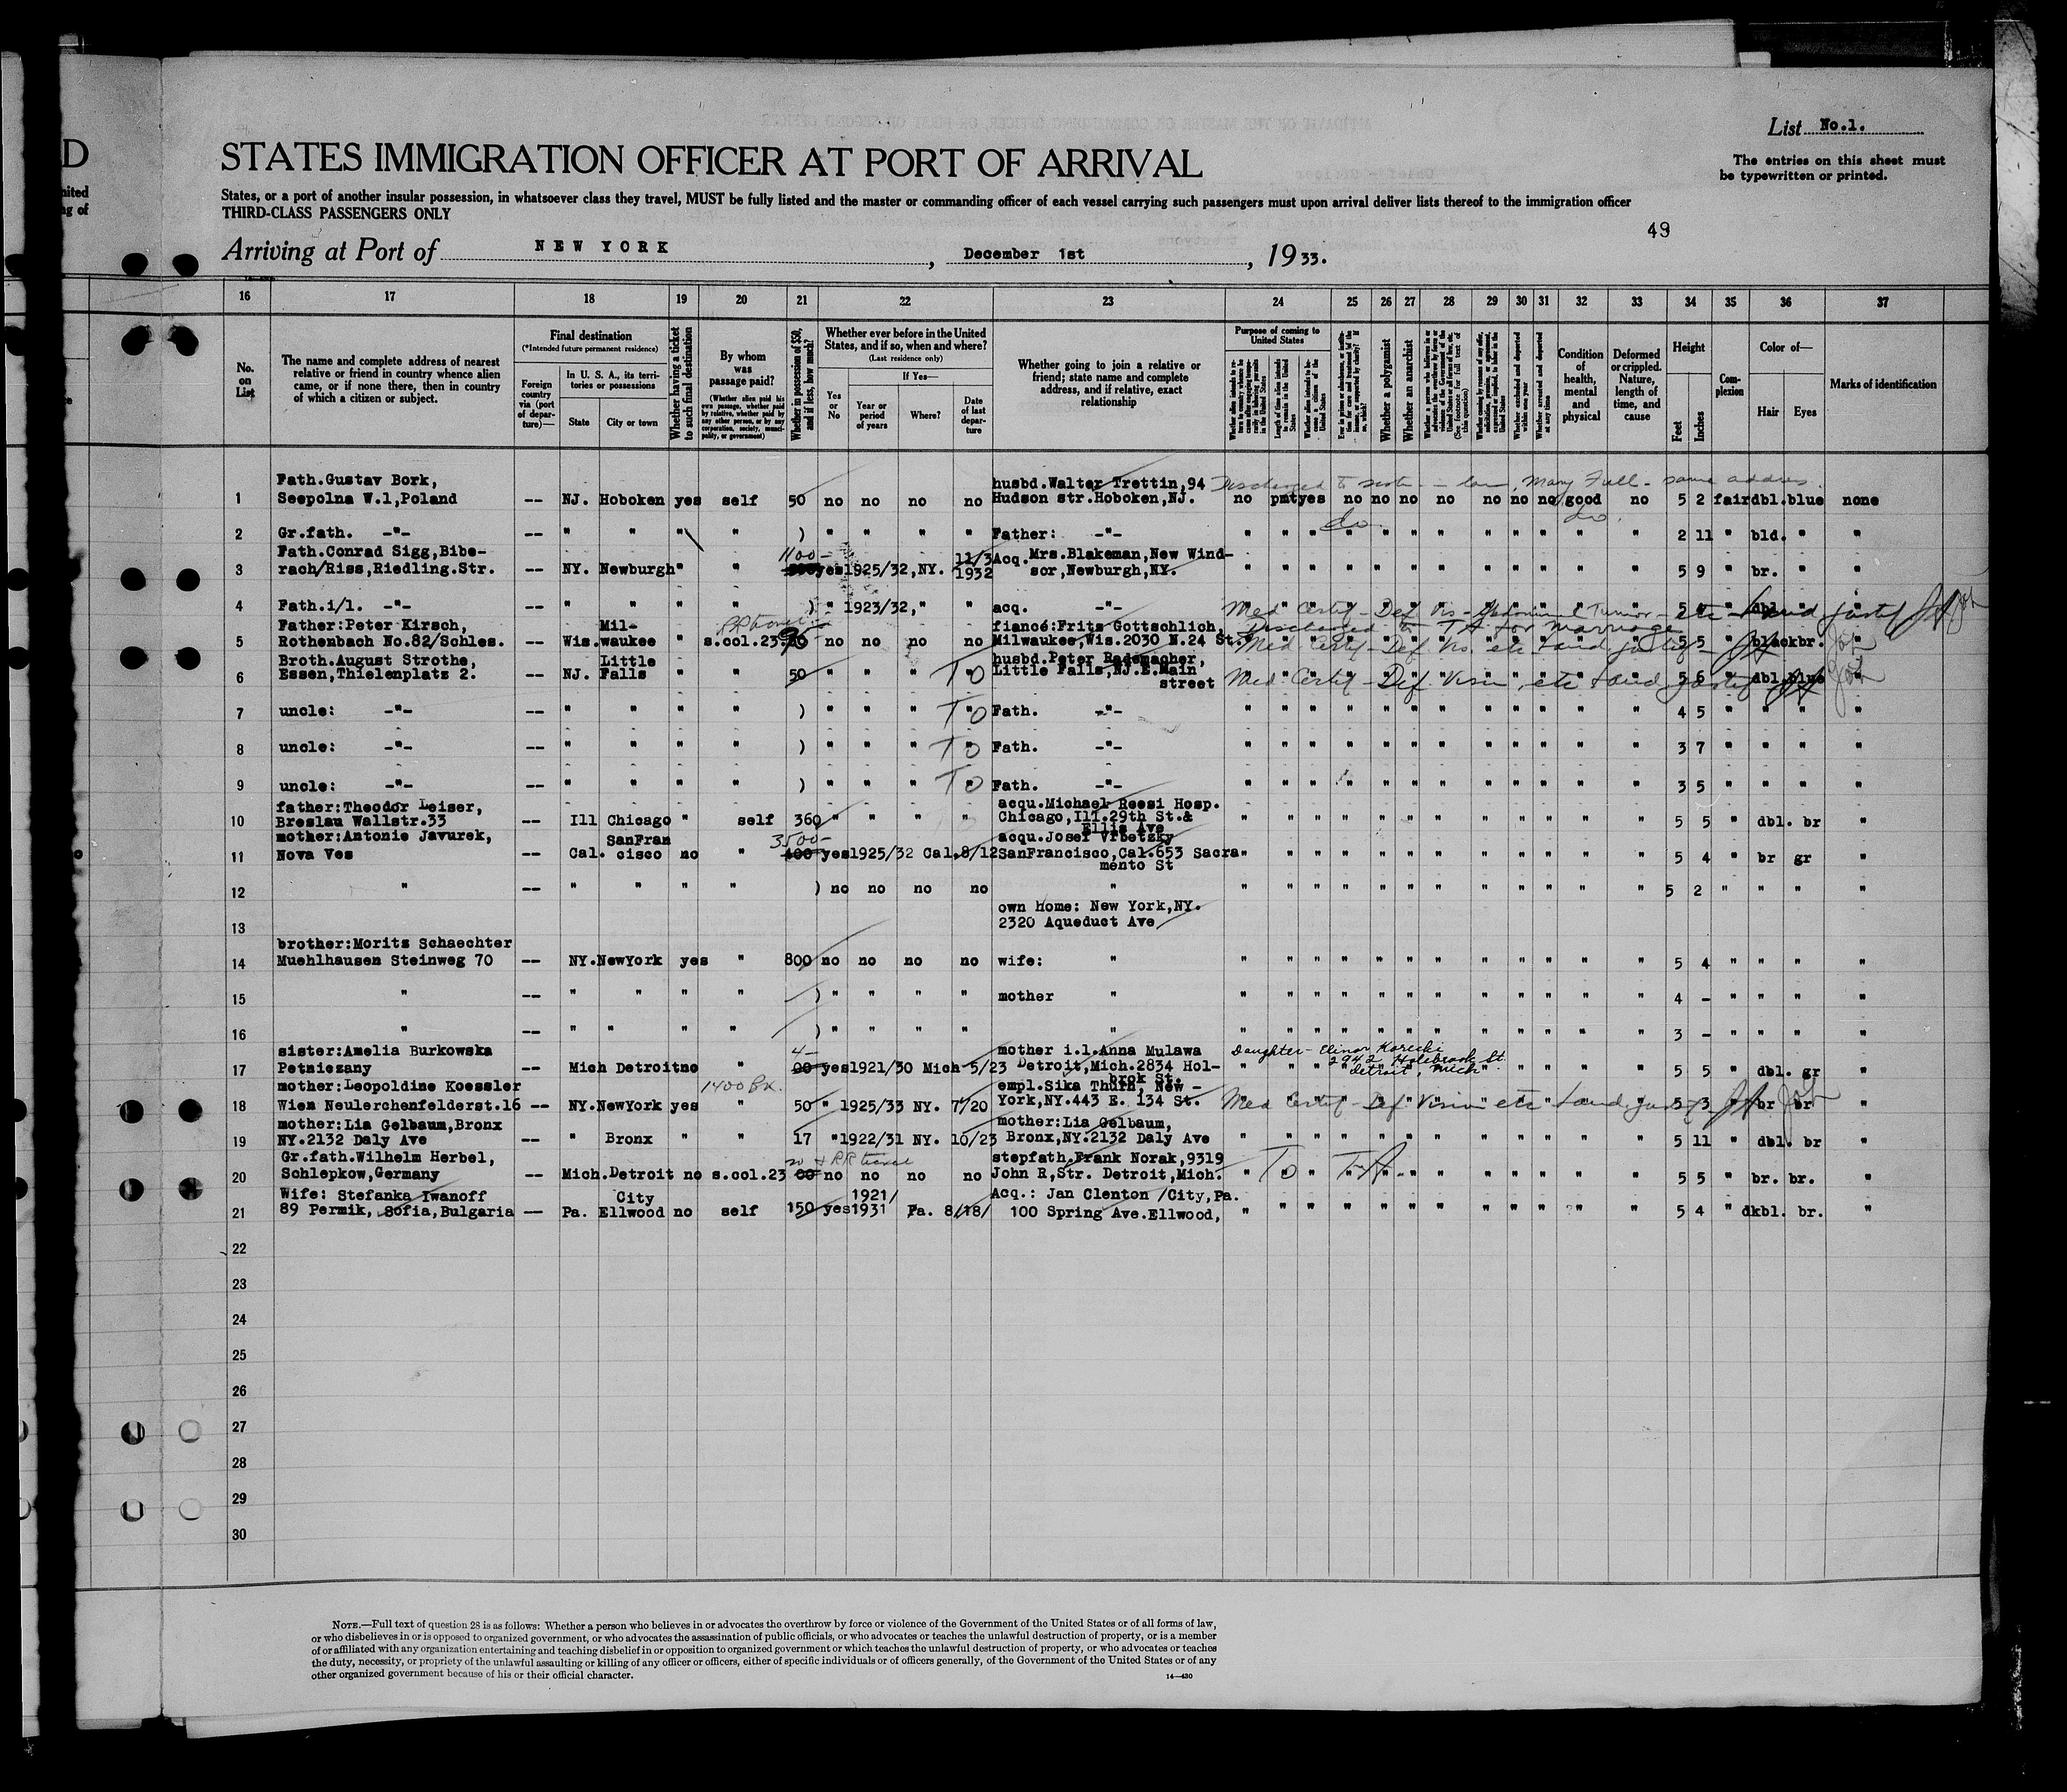 D
nited
ng of
List No.1.
The entries on this sheet must
be typewritten or printed.
STATES IMMIGRATION OFFICER AT PORT OF ARRIVAL
States, or a port of another insular possession, in whatsoever class they travel, MUST be fully listed and the master or commanding officer of each vessel carrying such passengers must upon arrival deliver lists thereof to the immigration officer
THIRD-CLASS PASSENGERS ONLY
49
Arriving at Port of NEW YORK, December 1st, 1933.
16 17 18 19 20 21 22 23 24 25 26 27 28 29 30 31 32 33 34 35 36 37
No. on List
The name and complete address of nearest relative or friend in country whence alien came, or if none there, then in country of which a citizen or subject.
Final destination
(*Intended future permanent residence)
Foreign country via (port of departure)—
In U. S. A., its territories or possessions
State
City or town
Whether having a ticket to such final destination
By whom was passage paid?
(Whether alien paid his own passage, whether paid by relative, whether paid by any other person, or by any corporation, society, municipality, or government)
Whether in possession of $50, and if less, how much?
Whether ever before in the United States, and if so, when and where?
(Last residence only)
If Yes—
Yes or No
Year or period of years
Where?
Date of last departure
Whether going to join a relative or friend; state name and complete address, and if relative, exact relationship
Purpose of coming to United States
Whether a polygamist
Whether an anarchist
Condition of health, mental and physical
Deformed or crippled. Nature, length of time, and cause
Height
Feet
Inches
Complexion
Color of—
Hair
Eyes
Marks of identification
Fath.Gustav Bork, husbd.Walter Trettin,94
1 Seepolna W.1,Poland -- NJ. Hoboken yes self 50 no no no no Hudson str.Hoboken,NJ. no pmt yes no no no no no no no good no 5 2 fair dbl. blue none
do do
2 Gr.fath. -"- -- " " " " ) " " " " Father: -"- " " " " " " " " " " " " 2 11 " bld. " "
Fath.Conrad Sigg,Bibe- 1100- 11/3 Acq. Mrs.Blakeman,New Wind-
3 rach/Riss,Riedling.Str. -- NY. Newburgh " " yes 1925/32,NY. 1932 sor,Newburgh,NY. " " " " " " " " " " " " 5 9 " br. " "
4 Fath.i/l. -"- -- " " " " ) " 1923/32, " " acq. -"- Med Certif - Def Vis -
Father:Peter Kirsch, Mil- fiancé:Frits Gottschlich, Discharged to TA for marriage
5 Rothenbach No.82/Schles. -- Wis. waukee " s.col.23. no no no no Milwaukee,Wis.2030 N.24 St. Med Certif - Def Vis. etc 5 5 black br.
Broth.August Strothe, Little husbd.Peter Rademacher,
6 Essen,Thielenplatz 2. -- NJ. Falls " " 50 " " " TO Little Falls,NJ.E.Main Med Certif - Def. Vision etc 5 6 " dbl. blue "
street
7 uncle: -"- -- " " " " ) " " " TO Fath. -"- " " " " " " " " " " " " 4 5 " " " "
8 uncle: -"- -- " " " " ) " " " TO Fath. -"- " " " " " " " " " " " " 3 7 " " " "
9 uncle: -"- -- " " " " ) " " " TO Fath. -"- " " " " " " " " " " " " 3 5 " " " "
father:Theodor Leiser, acqu.Michael Reesi Hosp.
10 Breslau Wallstr.33 -- Ill Chicago " self 360 " " " " Chicago,Ill.29th St.& " " " " " " " " " " " " 5 5 " dbl. br "
Ellis Ave
mother:Antonie Javurek, SanFran 3500- acqu.Josef Vrbetzky
11 Nova Ves -- Cal. cisco no " 400 yes 1925/32 Cal. 8/12 SanFrancisco,Cal.653 Sacra " " " " " " " " " " " " 5 4 " br gr "
mento St
12 " -- " " " " ) no no no no " " " " " " " " " " " " " 5 2 " " " "
own home: New York,NY.
13 2320 Aqueduct Ave
brother:Morits Schaechter
14 Muehlhausen Steinweg 70 -- NY. NewYork yes " 800 no no no no wife: " " " " " " " " " " " " " 5 4 " " " "
15 " -- " " " " ) " " " " mother " " " " " " " " " " " " " 4 - " " " "
16 " -- " " " " ) " " " " " " " " " " " " " " " " " 3 - " " " "
sister:Amelia Burkowska 4- mother i.l.Anna Mulawa Daughter - Elinor Karecki
17 Petniczany -- Mich Detroit no " 00 yes 1921/30 Mich 5/23 Detroit,Mich.2834 Hol- 2942 Holebrook St. Detroit, Mich 5 5 " dbl. gr "
brok St.
mother:Leopoldine Koessler 1400 Bx. empl.Sika Thurn, New -
18 Wien Neulerchenfelderst.16 -- NY. NewYork yes " 50 " 1925/33 NY. 7/20 York,NY.443 E. 134 St. Med Certif - Def Vision etc 5 3 br br "
mother:Lia Gelbaum,Bronx mother:Lia Gelbaum,
19 NY.2132 Daly Ave -- " Bronx " " 17 " 1922/31 NY. 10/23 Bronx,NY.2132 Daly Ave " " " " " " " " " " " " 5 11 " dbl. br "
Gr.fath.Wilhelm Herbel, stepfath.Frank Norak,9319
20 Schlepkow,Germany -- Mich. Detroit no s.col.23 00 no no no no John R,Str. Detroit,Mich. To TA 5 5 " br. br. "
Wife: Stefanka Iwanoff City 1921/ Acq.: Jan Clenton /City,Pa.
21 89 Permik, Sofia,Bulgaria -- Pa. Ellwood no self 150 yes 1931 Pa. 8/18/ 100 Spring Ave.Ellwood, " " " " " " " " " " " " 5 4 " dkbl. br. "
22
23
24
25
26
27
28
29
30
NOTE.—Full text of question 28 is as follows: Whether a person who believes in or advocates the overthrow by force or violence of the Government of the United States or of all forms of law,
or who disbelieves in or is opposed to organized government, or who advocates the assassination of public officials, or who advocates or teaches the unlawful destruction of property, or is a member
of or affiliated with any organization entertaining and teaching disbelief in or opposition to organized government or which teaches the unlawful destruction of property, or who advocates or teaches
the duty, necessity, or propriety of the unlawful assaulting or killing of any officer or officers, either of specific individuals or of officers generally, of the Government of the United States or of any
other organized government because of his or their official character.
14—430